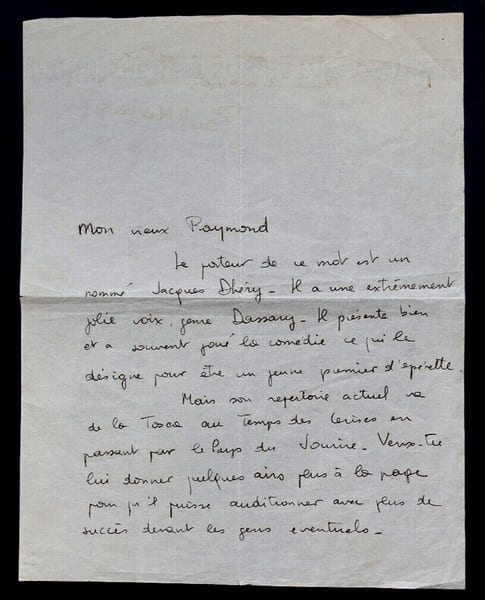 Mon vieux Raymond
Le porteur de ce mot est un
nommé Jacques Dhéry_ Il a une extrêmement
jolie voix, genre Dassary_ Il présente bien
et a souvent joué la comédie ce qui le
désigne pour être un jeune premier d'opérette.
Mais son repertoire actuel va
de la Tosca au Temps des Cerises en
passant par le Pays du Sourire_ Veux-tu
lui donner quelques airs plus à la page
pour qu'il puisse auditionner avec plus de
succès devant les gens eventuels_